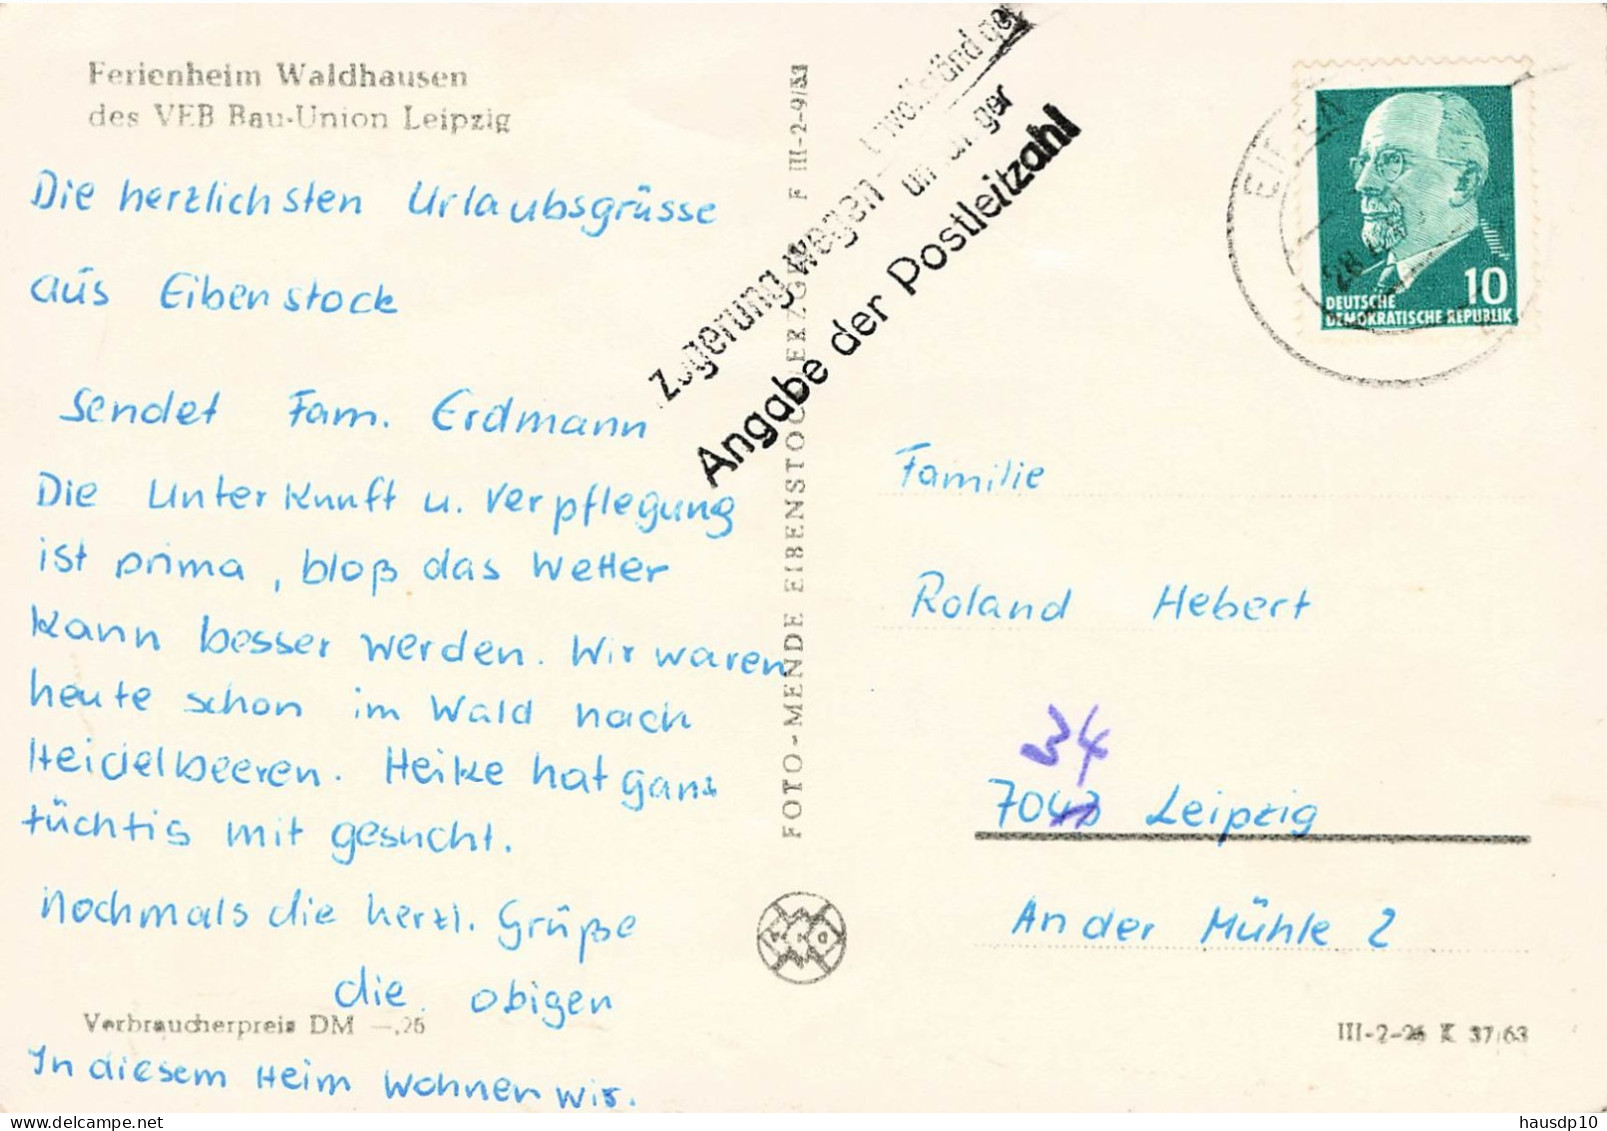 Ferienheim Waldhausen
des VEB Bau-Union Leipzig
Die herzlichsten Urlaubsgrüsse
aus Eibenstock
Sendet Fam. Erdmann
Die Unterkunft u. Verpflegung
ist prima, bloß das Wetter
kann besser werden. Wir waren
heute schon im Wald nach
Heidelbeeren. Heike hat ganz
tüchtig mit gesucht.
Nochmals die herzl. Grüße
die obigen
Verbraucherpreis DM —,25
In diesem Heim wohnen wir.
FOTO-MENDE EIBENSTOCK ERZGEB F III-2-9/53
wegen
Angabe der Postleitzahl
10
DEUTSCHE
DEMOKRATISCHE REPUBLIK
Familie
Roland Hebert
34
Leipzig
An der Mühle 2
III-2-26 K 37/63
hausdp10